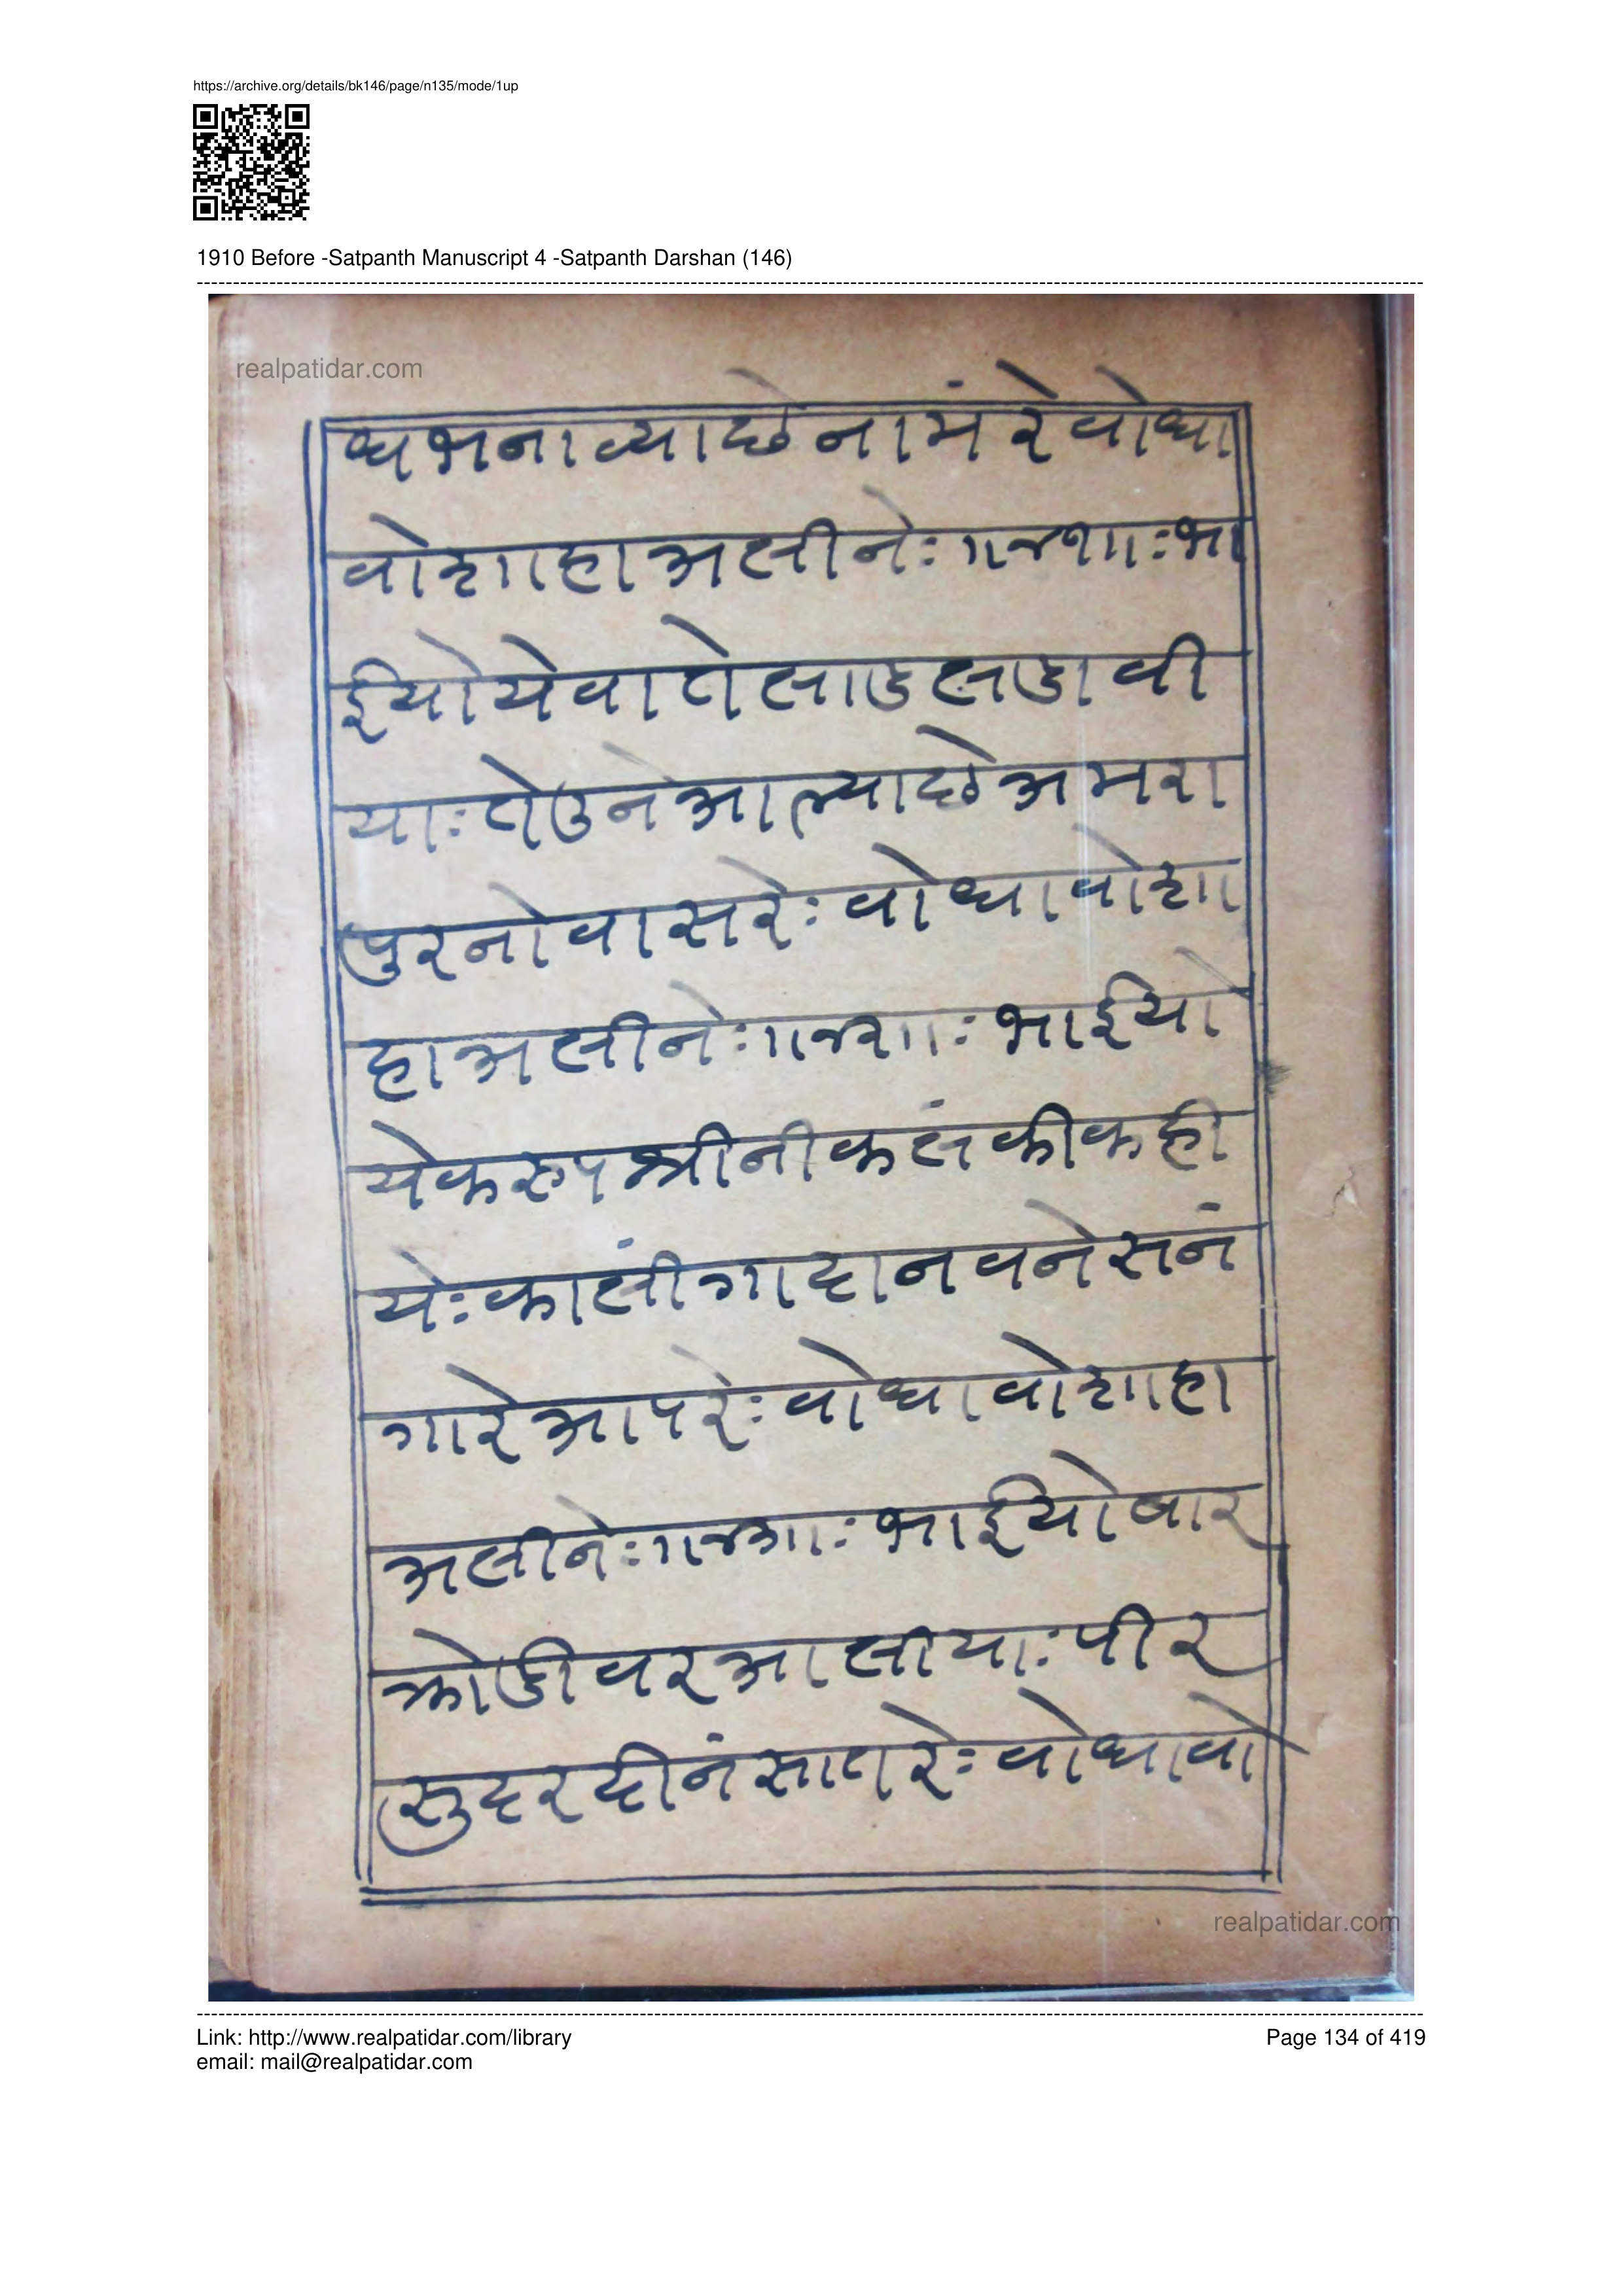 https://archive.org/details/bk146/page/n135/mode/1up
1910 Before -Satpanth Manuscript 4 -Satpanth Darshan (146)
realpatidar.com
धभनाव्याछेनामंरेवोधा
वोशाहाअलीनेः॥जशाःभा
ईयोयेवातोलाडलडावी
याःतेउनेआल्याछेअमरा
पुरनोवासरेःवोधावोशा
हाअलीनेः॥जशाःभाईयो
येकरुपश्रीनीकलंकीकही
येःकालींगादानवनेसनं
गारेआपरेःवोधावोशाहा
अलीनेः॥जशाःभाईयोबार
क्रोडीवरआलीयाःपीर
सुदरदीनंसातरेःवोधावो
realpatidar.com
Link: http://www.realpatidar.com/library
Page 134 of 419
email: mail@realpatidar.com